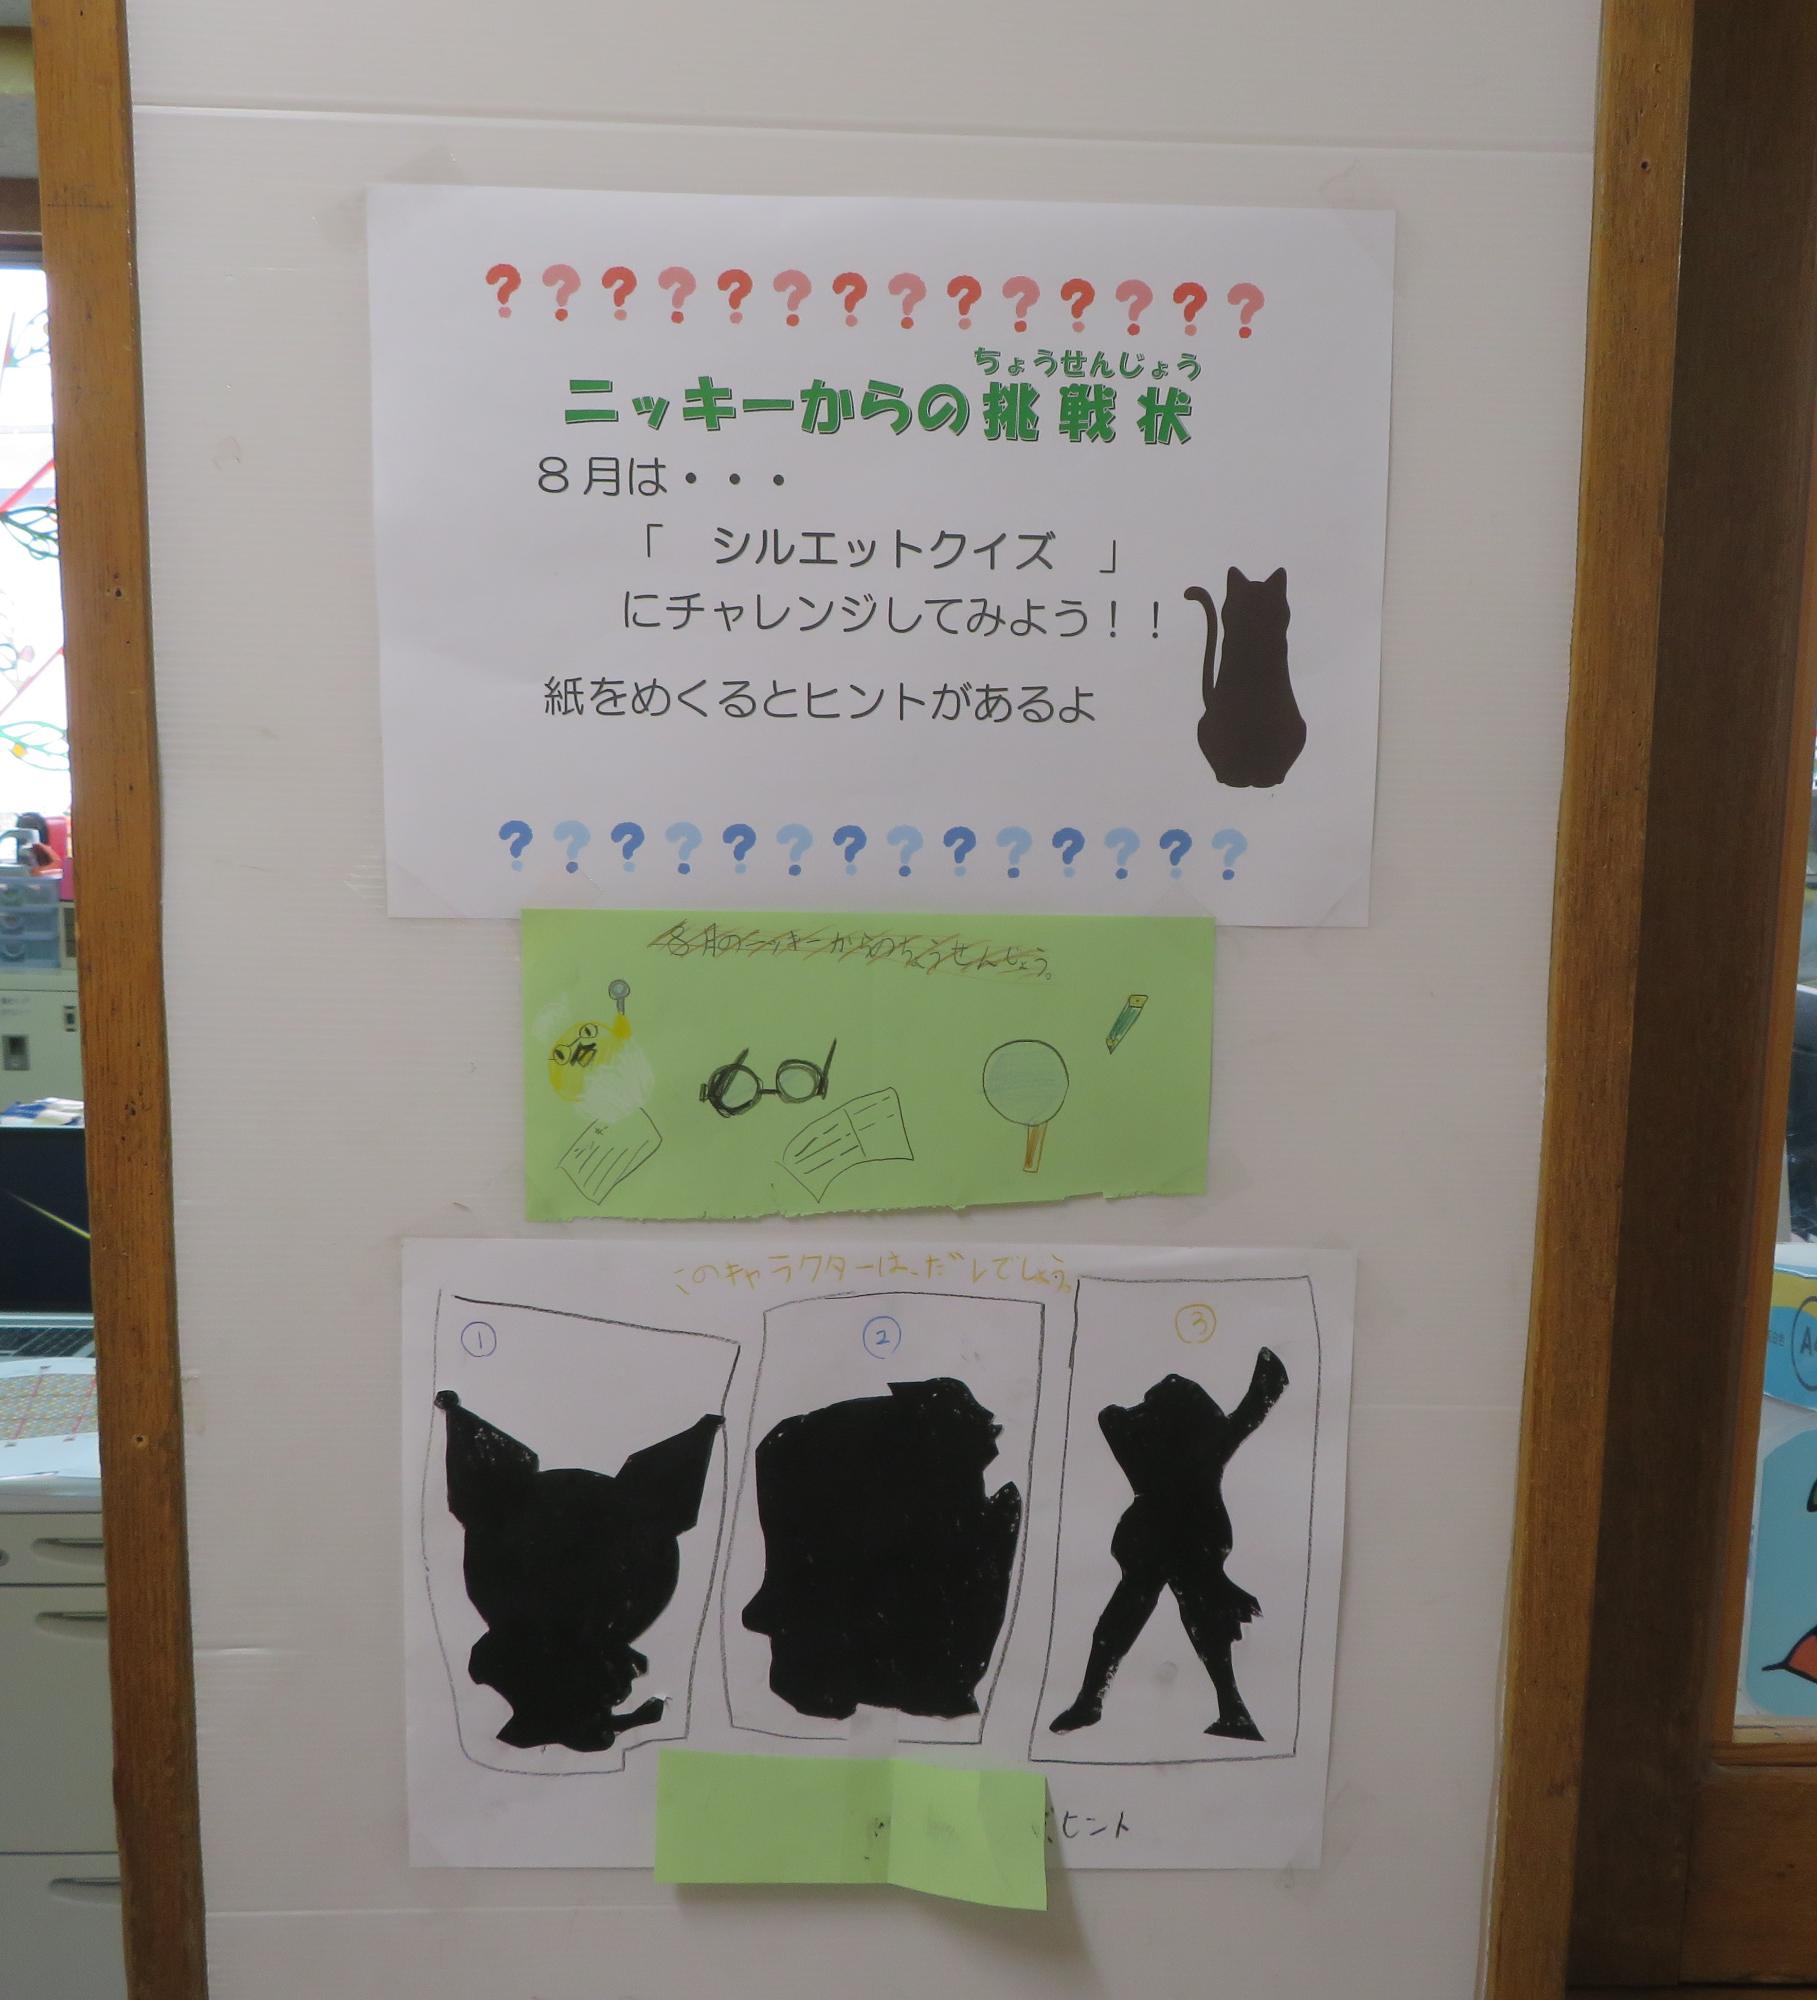 ????????????????????????????
ちょうせんじょう
ニッキーからの挑戦状
8月は・・・
「　シルエットクイズ　」
にチャレンジしてみよう！！
紙をめくるとヒントがあるよ
??????????????
8月のニッキーからのちょうせんじょう。
このキャラクターは、だレでしょう。
① ② ③
ヒント